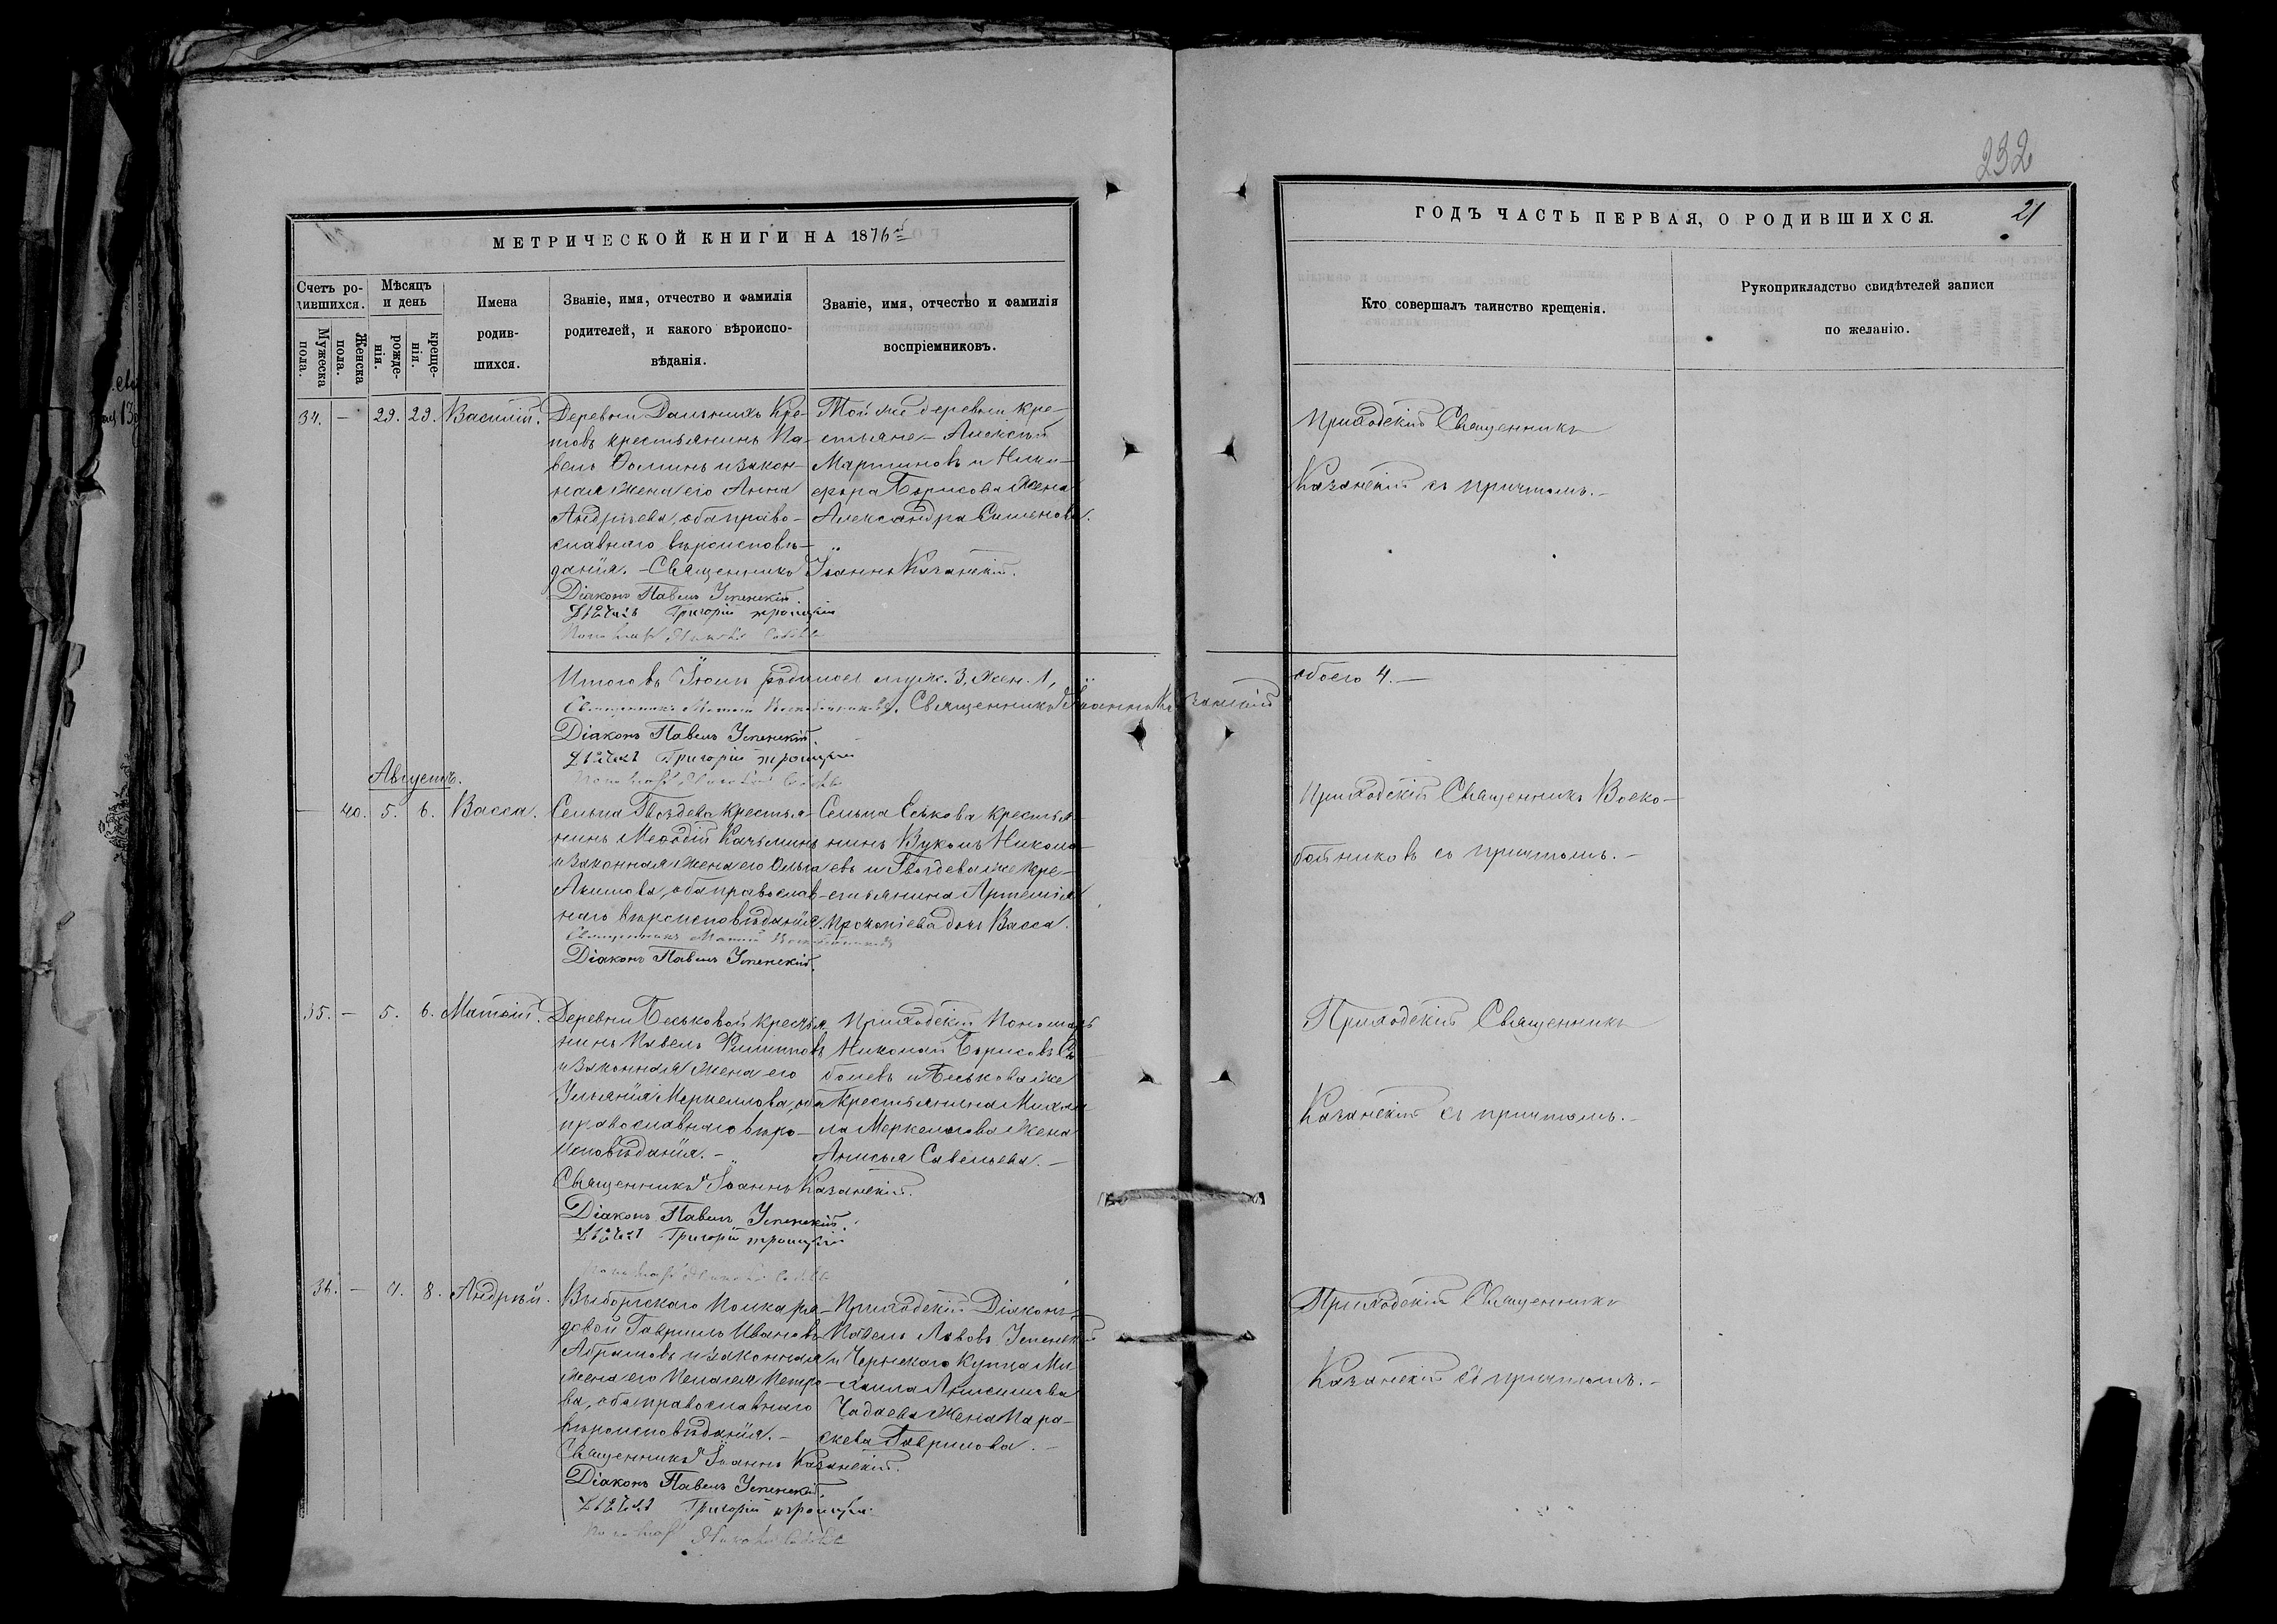 232
МЕТРИЧЕСКОЙ КНИГИ НА 1876й
ГОДЪ ЧАСТЬ ПЕРВАЯ, О РОДИВШИХСЯ.
21
Счетъ ро-
дившихся.
Мужеска пола.
Женска пола.
Мѣсяцъ и день
рожде-нія.
креще-нія.
Имена
родив-
шихся.
Званіе, имя, отчество и фамилія
родителей, и какого вѣроиспо-
вѣданія.
Званіе, имя, отчество и фамилія
воспріемниковъ.
Кто совершалъ таинство крещенія.
Рукоприкладство свидѣтелей записи
по желанію.
34. — 29. 29. Василій.
Деревни Дальнихъ Кре-
товъ крестьянинъ Па-
велъ Ѳоминъ и закон-
ная жена его Анна
Андрѣева, оба право-
славнаго вѣроисповѣ-
данія. — Священникъ Іоаннъ Казанскій.
Діаконъ Павелъ Успенскій.
Дьячекъ Григорій Троицкій
Той же деревни кре-
стьяне — Алексѣй
Мартиновъ и Ники-
фора Борисова жена
Александра Симеонова.
Приходскій Священникъ
Казанскій съ причтомъ. —
Итого въ Іюлѣ родилось муж. 3, жен. 1,
обоего 4. —
Священникъ Матѳій Воскобойниковъ. Священникъ Іоаннъ Казанскій
Діаконъ Павелъ Успенскій.
Дьячекъ Григорій Троицкій
Августъ.
— 40. 5. 6. Васса.
Сельца Гвоздева крестья-
нинъ Меѳодій Качьминъ
и законная жена его Ольга
Акимова, оба православ-
наго вѣроисповѣданія.
Священникъ Матѳій Воскобойниковъ
Діаконъ Павелъ Успенскій.
Сельца Еськова крестья-
нинъ Вуколъ Никола-
евъ и Гвоздева же кре-
стьянина Артемія
Прокопіева дочь Васса.
Приходскій Священникъ Воско-
бойниковъ съ причтомъ. —
35. — 5. 6. Матѳій.
Деревни Беськовой крестья-
нинъ Павелъ Филипповъ
и законная жена его
Ульянія Меркелова, оба
православнаго вѣро-
исповѣданія. —
Священникъ Іоаннъ Казанскій.
Діаконъ Павелъ Успенскій.
Дьячекъ Григорій Троицкій
Приходскій Пономарь
Николай Борисовъ Со-
болевъ и Беськова же
крестьянина Михаи-
ла Меркелова жена
Анисья Савельева. —
Приходскій Священникъ
Казанскій съ причтомъ. —
36. — 7. 8. Андрѣй.
Выборгскаго полка ря-
довой Гавріилъ Ивановъ
Абрамовъ и законная
жена его Пелагея Петро-
ва, оба православнаго
вѣроисповѣданія. —
Священникъ Іоаннъ Казанскій.
Діаконъ Павелъ Успенскій
Дьячекъ Григорій Троицкій
Приходскій Діаконъ
Павелъ Львовъ Успенскій
и Чернскаго купца Ми-
хаила Анисимова
Чадаева жена Пара-
скева Гаврилова. —
Приходскій Священникъ
Казанскій съ причтомъ. —